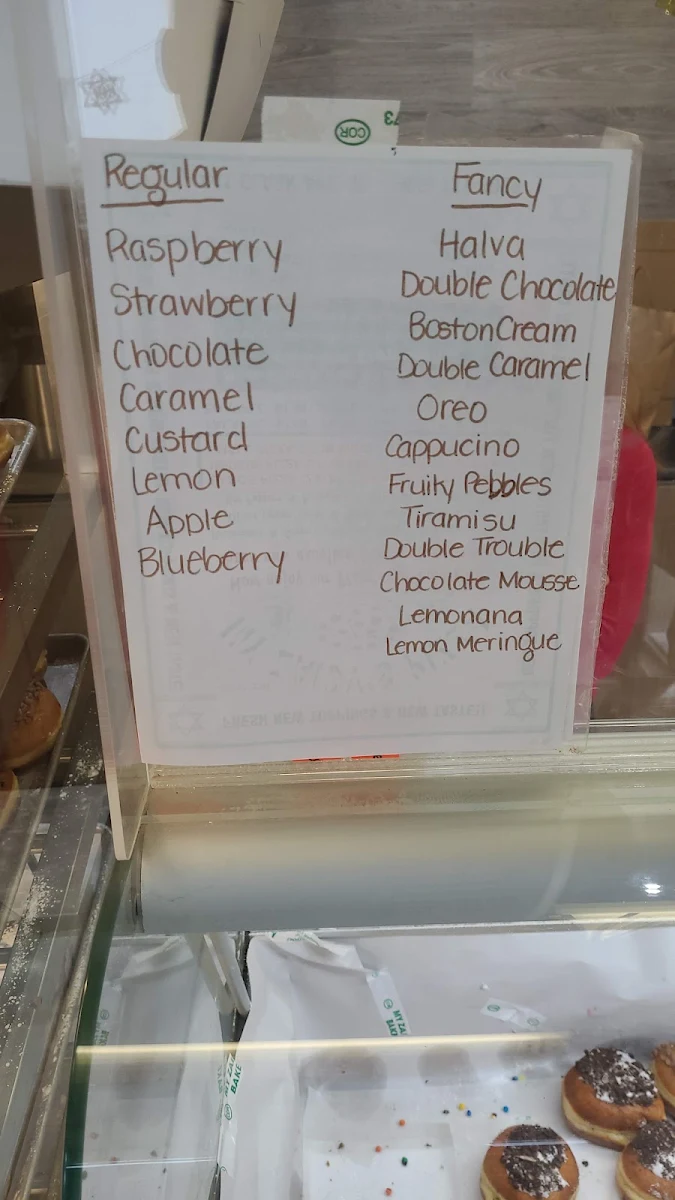 COR
73
Regular
Raspberry
Strawberry
Chocolate
Caramel
Custard
Lemon
Apple
Blueberry
Fancy
Halva
Double Chocolate
Boston Cream
Double Caramel
Oreo
Cappucino
Fruity Pebbles
Tiramisu
Double Trouble
Chocolate Mousse
Lemonana
Lemon Meringue